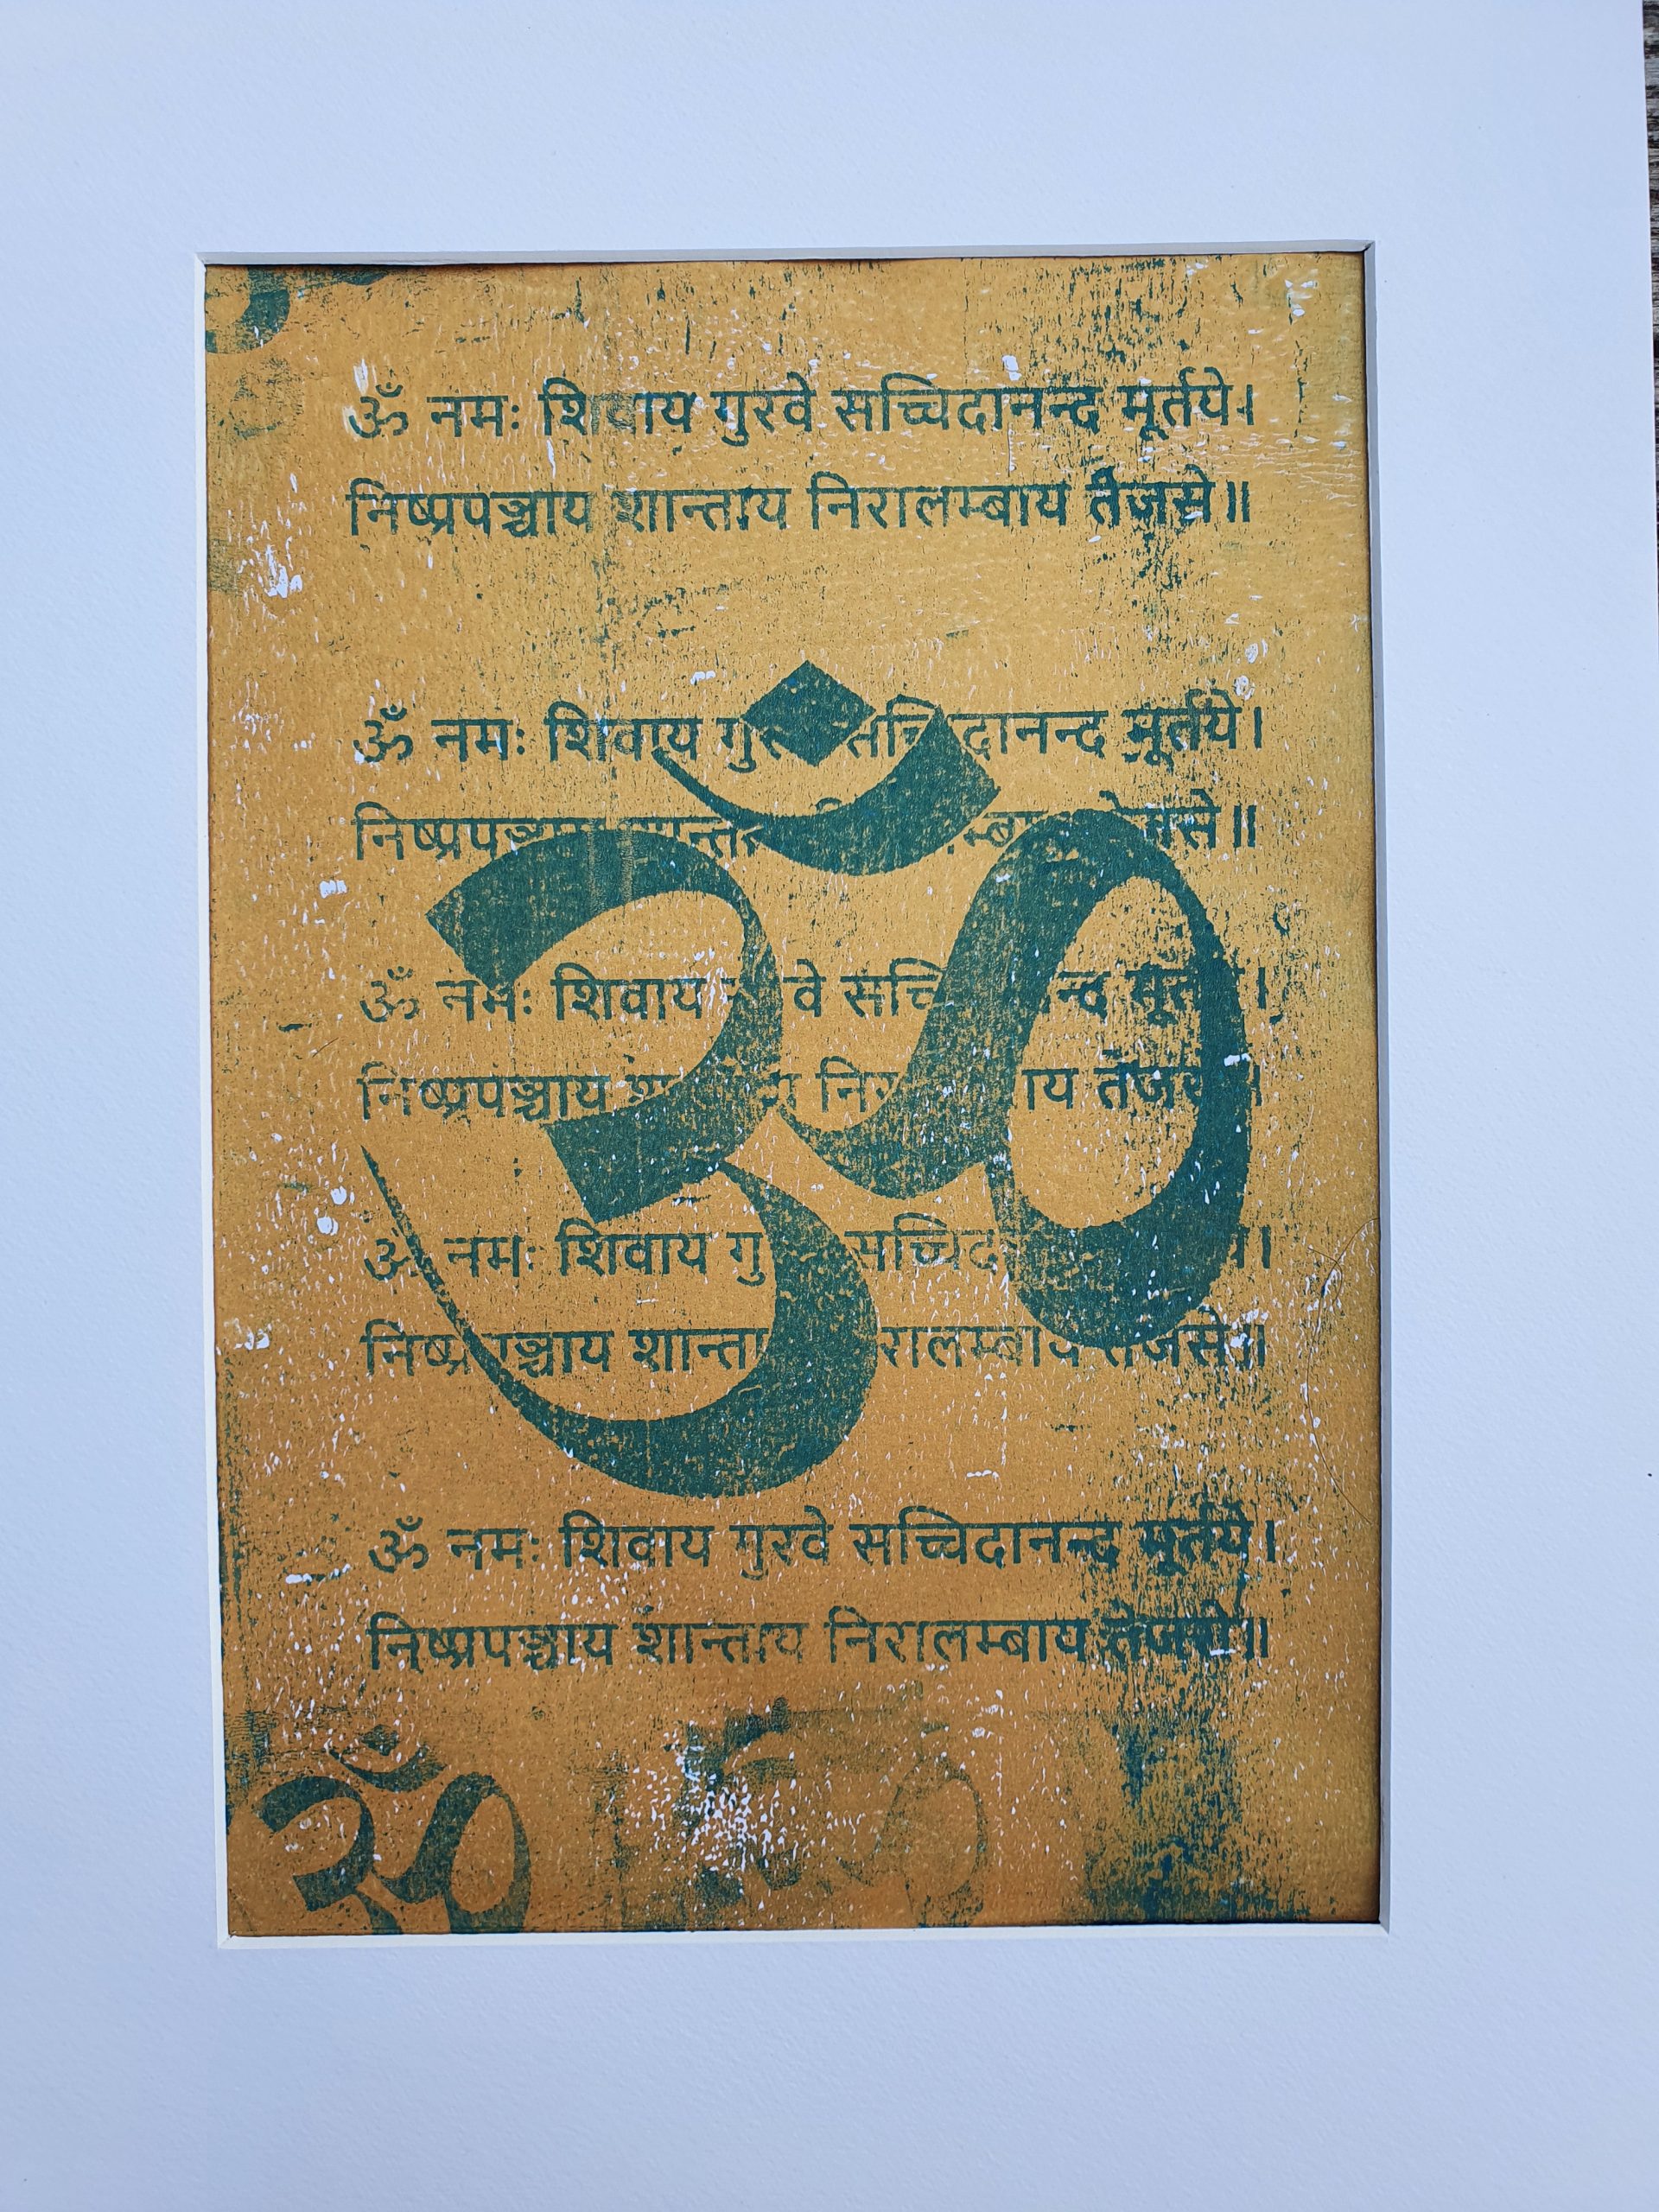 ॐ नमः शिवाय गुरवे सच्चिदानन्द मूर्तये।
निष्प्रपञ्चाय शान्ताय निरालम्बाय तेजसे॥
ॐ नमः शिवाय सच्चिदानन्द मूर्तये।
निष्प्रपञ्चाय तेजसे॥
ॐ नमः शिवाय
निष्प्रपञ्चाय तेजसे॥
ॐ नमः शिवाय
निष्प्रपञ्चाय शान्ताय निरालम्बाय तेजसे॥
ॐ नमः शिवाय गुरवे सच्चिदानन्द मूर्तये।
निष्प्रपञ्चाय शान्ताय निरालम्बाय तेजसे॥
ॐ
ॐ